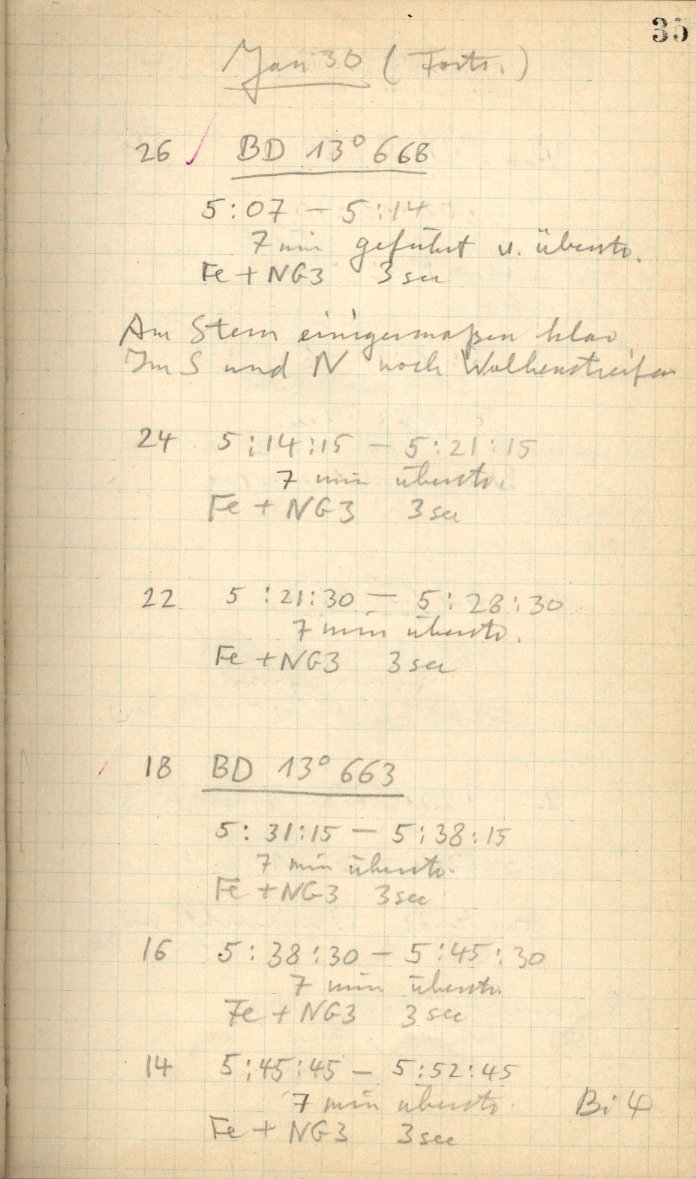 35
Jan 30 (Forts.)
26 BD 13° 668
5:07 – 5:14
7 min geführt u. überstr.
Fe + NG3 3 sec
Am Stern einigermaßen klar
Im S und N noch Wolkenstreifen
24 5:14:15 – 5:21:15
7 min überstr.
Fe + NG3 3 sec
22 5:21:30 – 5:28:30
7 min überstr.
Fe + NG3 3 sec
18 BD 13° 663
5:31:15 – 5:38:15
7 min überstr.
Fe + NG3 3 sec
16 5:38:30 – 5:45:30
7 min überstr.
Fe + NG3 3 sec
14 5:45:45 – 5:52:45
7 min überstr. Bi 4
Fe + NG3 3 sec